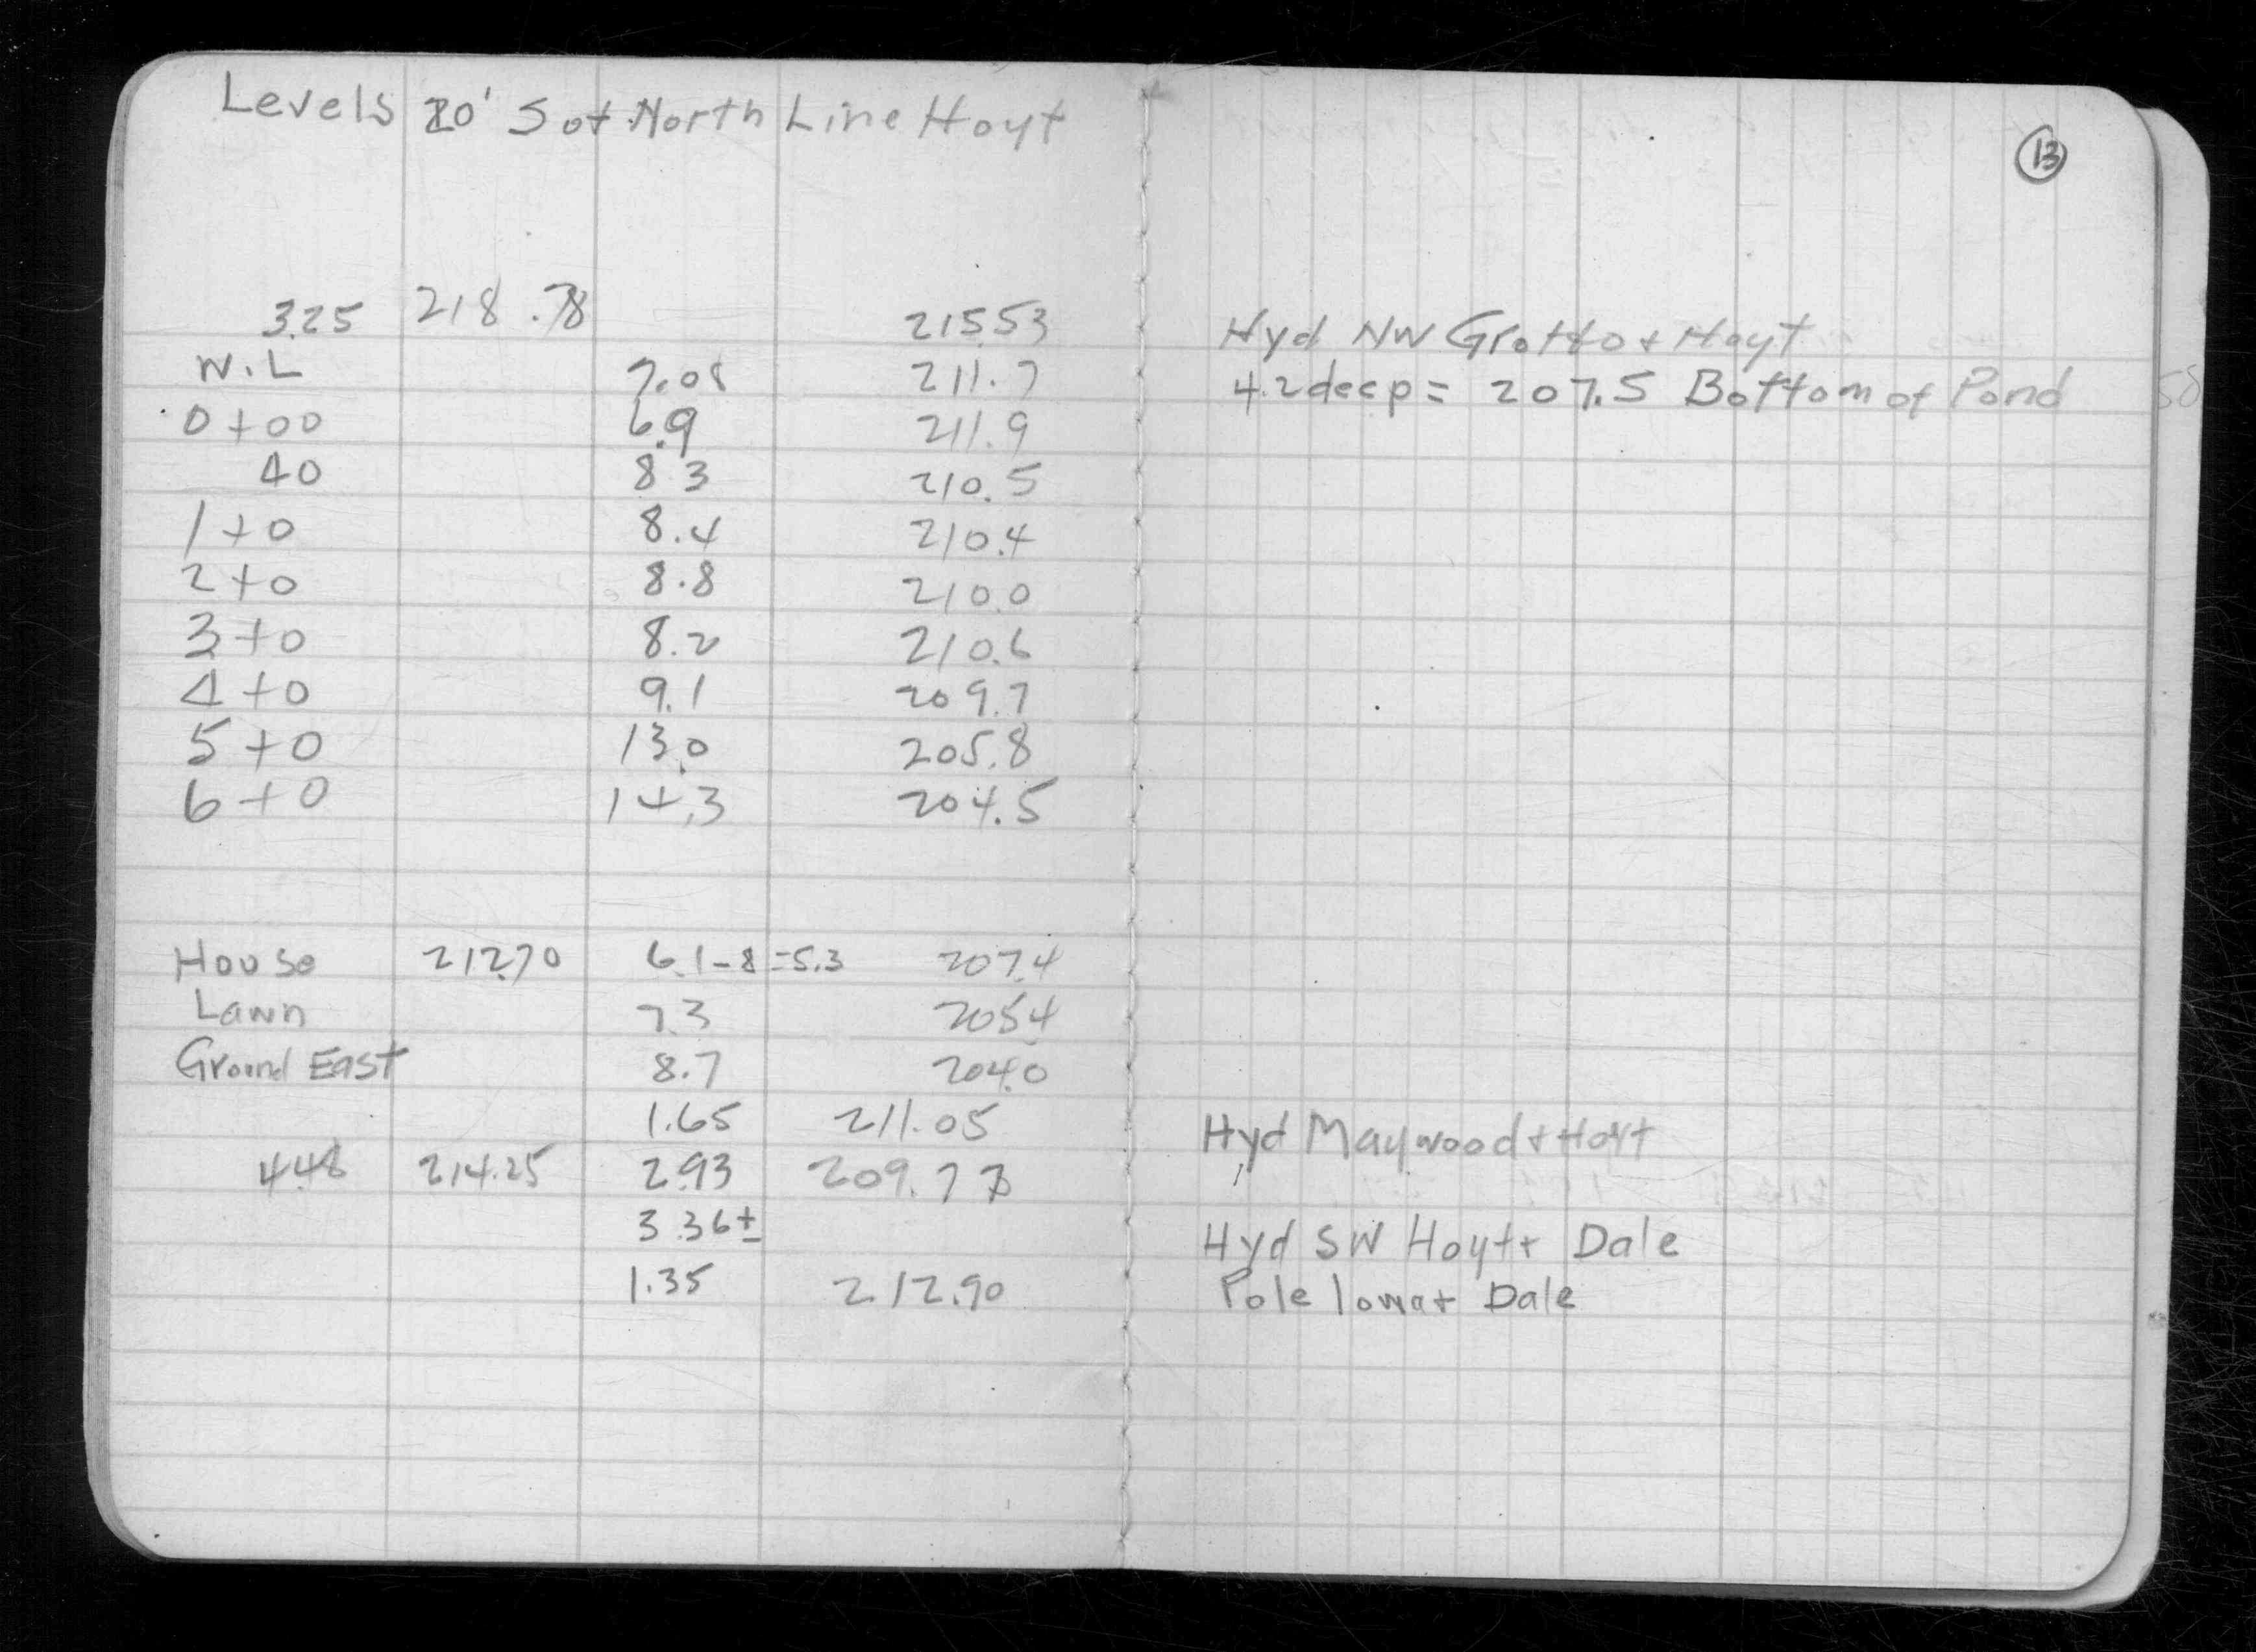 Levels 20' S of North Line Hoyt
13
3.25 218.78 215.53 Hyd NW Grotto + Hoyt
W.L 7.08 211.7 4.2 deep = 207.5 Bottom of Pond
0+00 6.9 211.9
40 8.3 210.5
1+0 8.4 210.4
2+0 8.8 210.0
3+0 8.2 210.6
4+0 9.1 209.7
5+0 13.0 205.8
6+0 14.3 204.5
House 212.70 6.1-8=5.3 207.4
Lawn 7.3 205.4
Ground East 8.7 204.0
1.65 211.05 Hyd Maywood + Hoyt
4.48 214.25 2.93 209.77
3.36± Hyd SW Hoyt + Dale
1.35 212.90 Pole Iowa + Dale